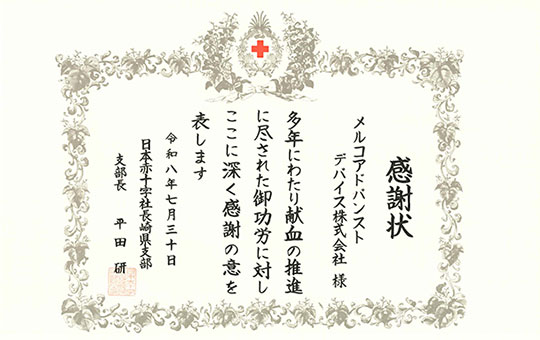 感謝状
メルコアドバンスト
デバイス株式会社 様
多年にわたり献血の推進
に尽された御功労に対し
ここに深く感謝の意を
表します
令和八年七月三十日
日本赤十字社長崎県支部
支部長 平田 研